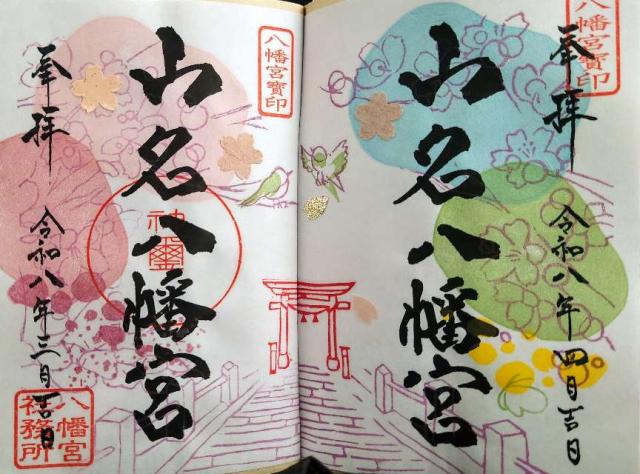 八幡宮寶印
奉拝
令和八年四月吉日
山名八幡宮
八幡宮寶印
山名八幡宮
神璽
奉拝
令和八年三月吉日
八幡宮
社務所